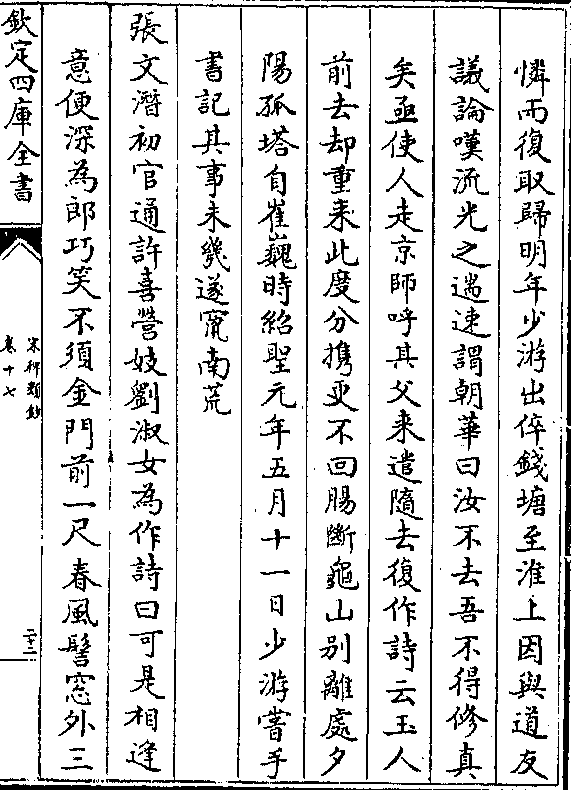 憐而復取歸明年少游出倅錢塘至淮上因與道友
議論嘆流光之遄速謂朝華曰汝不去吾不得修真
矣亟使人走京師呼其父来遣隨去復作詩云玉人
前去却重来此度分携更不回腸斷龜山别離處夕
陽孤塔自崔巍時紹聖元年五月十一日少游嘗手
書記其事未幾遂竄南荒
張文潛初官通許喜營妓劉淑女為作詩曰可是相逢
意便深為郎巧笑不須金門前一尺春風髻窓外三
欽定四庫全書
宋稗類鈔
卷十七
二十二